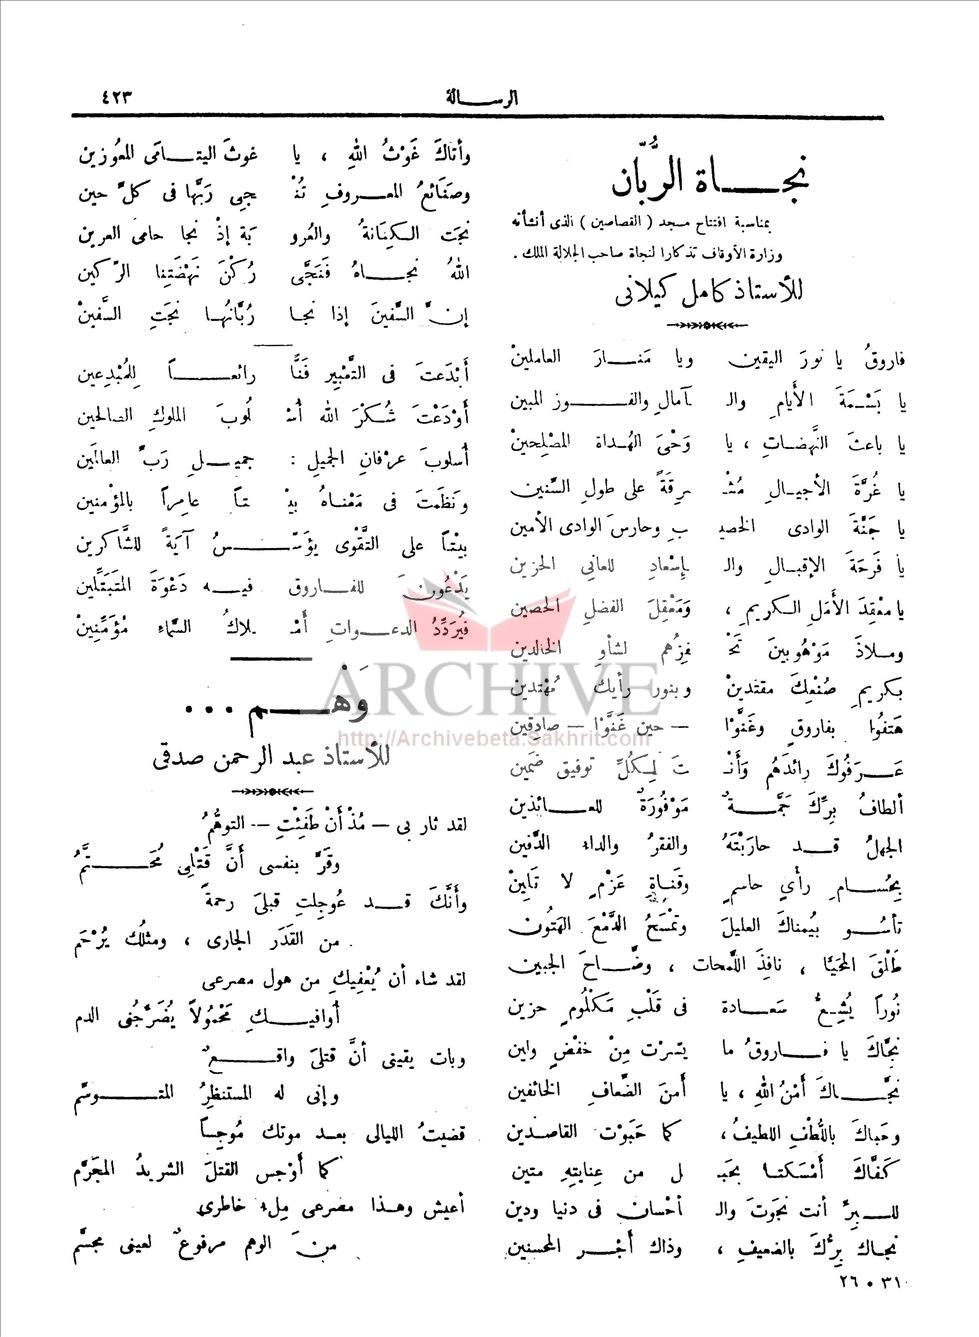 ٤٢٣
الرسالة
نجاة الرُّبّان
بمناسبة افتتاح مسجد ( القصاصين ) الذى أنشأته
وزارة الأوقاف تذكارا لنجاة صاحب الجلالة الملك .
للأستاذ كامل كيلانى
فاروقُ يا نورَ اليقين ويا مَنارَ العاملينْ
يا بَسْمَةَ الأيامِ والـ ـآمالِ والفوزِ المبين
يا باعثَ النَّهضاتِ ، يا وَحْىَ الهُداة المصْلِحينْ
يا غُرَّةَ الأجيالِ مُشْـ ـرِقَةً على طولِ السِّنين
يا جَنَّةَ الوادى الخصيـ ـبِ وحارسَ الوادى الأمين
يا فَرحَةَ الإقبالِ والـ ـإسْعادِ للعانِى الحزين
يا معْقِدَ الأمَلِ الكريمِ ، ومَعْقِلَ الفضلِ الحصين
وملاذَ مَوْهوبينَ تَحْـ ـفِزُهم لشأوِ الخالدين
بكريمِ صُنْعِكَ مقتدينْ وبنورِ رأيِكَ مُهْتدين
هَتفُوا بفاروقٍ وغَنَّوْا — حين غَنَّوْا — صادِقِين
عَرفُوكَ رائدَهُم وَأنْـ ـتَ لِكلِّ توفيقٍ ضَمين
ألطافُ بِرِّكَ جَمَّةٌ مَوْفُورَةٌ للعائذين
الجهلُ قد حارَبْتَهُ والفقرُ والداءَ الدَّفين
بِحُسامِ رأىٍ حاسمٍ وقَناةِ عَزْمٍ لا تَلِينْ
تأسُو بيُمناكَ العليلَ وتمْسَحُ الدَّمْعَ الهَتُون
طَلْقَ المحَيَّا ، نافِذَ اللَّمحات ، وضَّاحَ الجبين
نُوراً يُشِعُّ سَعادة فى قَلْبِ مَكْلُومٍ حزين
نجَّاكَ يا فاروقُ ما يَسَّرْتَ مِنْ خفْضٍ ولين
نجَّاكَ أمْنُ اللهِ ، يا أمنَ الضِّعافِ الخائفين
وحَباكَ باللُّطْفِ اللطيفُ ، كما حَبَوْت القاصدين
كَفَّاكَ أَمْسَكتا بحَبـ ـلٍ من عِنايتِهِ متين
للبِرِّ أنت نجَوتَ والـ ـأحْسان فى دنيا ودين
نجاكَ بِرُّكَ بالضعيفِ ، وذاك أجْرُ المحسنين
٣١ ٥ ٢٦
وأتاكَ غَوْثُ اللهِ ، يا غوثَ اليتامَى المعْوزين
وصنَائعُ المعروفِ تُنْـ ـجِى رَبَّها فى كلَّ حين
نجَت الكِنانَةُ والعُرو بة إذْ نجا حامى العرين
اللهُ نجاهُ فَنَجَّى رُكْنَ نَهْضَتِنا الرَّكين
إنَّ السَّفينَ إذا نجا رُبَّانُها نجَتِ السَّفين
أبْدَعتَ فى التَّعْبِير فَنًّا رائعاً للمُبْدِعين
أَوْدَعْتَ شُكْرَ الله أُسْـ ـلُوبَ الملوكِ الصالحين
أسلوبَ عرْفانِ الجميلِ : جميلِ رَبِّ العالَمين
ونَظمْتَ فى مَعْناهُ بَيْـ ـتاً عامِراً بالمؤمنين
بيْتاً على التَّقْوى يؤَسَّسُ آيَةً للشَّاكرين
يَدْعُونَ للفاروقِ فيه دَعْوَةَ المتَبَتِّلين
فيُرَدِّدُ الدعواتِ أمْـ ـلاكُ السَّماء مؤَمِّنِينْ
وَهْم ...
للأستاذ عبد الرحمن صدقى
لقد ثار بى — مُذْ أَنْ طَفِئْتِ — التوهُّمُ
وقرَّ بنفسى أنَّ قَتْلِى مُحَتَّمُ
وأنَّكَ قد عُوجلتِ قبلىَ رحمةً
من القَدَر الجارى ، ومثلُك يُرْحَم
لقد شاء أن يُعْفيكِ من هول مصرعى
أُوافيكِ مَحْمولاً يُضَرِّجُنى الدم
وبات يقينى أنَّ قتلىَ واقعٌ
وإنى له المستنظِرُ المتوسِّم
قضيتُ الليالى بعد موتك مُوجِساً
كما أوْجس القتلَ الشريدُ المجَرَّم
أعيش وهذا مصرعى مِلءَ خاطرى
منَ الوهم مرفوعٌ لعينى مجسَّم
ARCHIVE
http://Archivebeta.Sakhrit.com